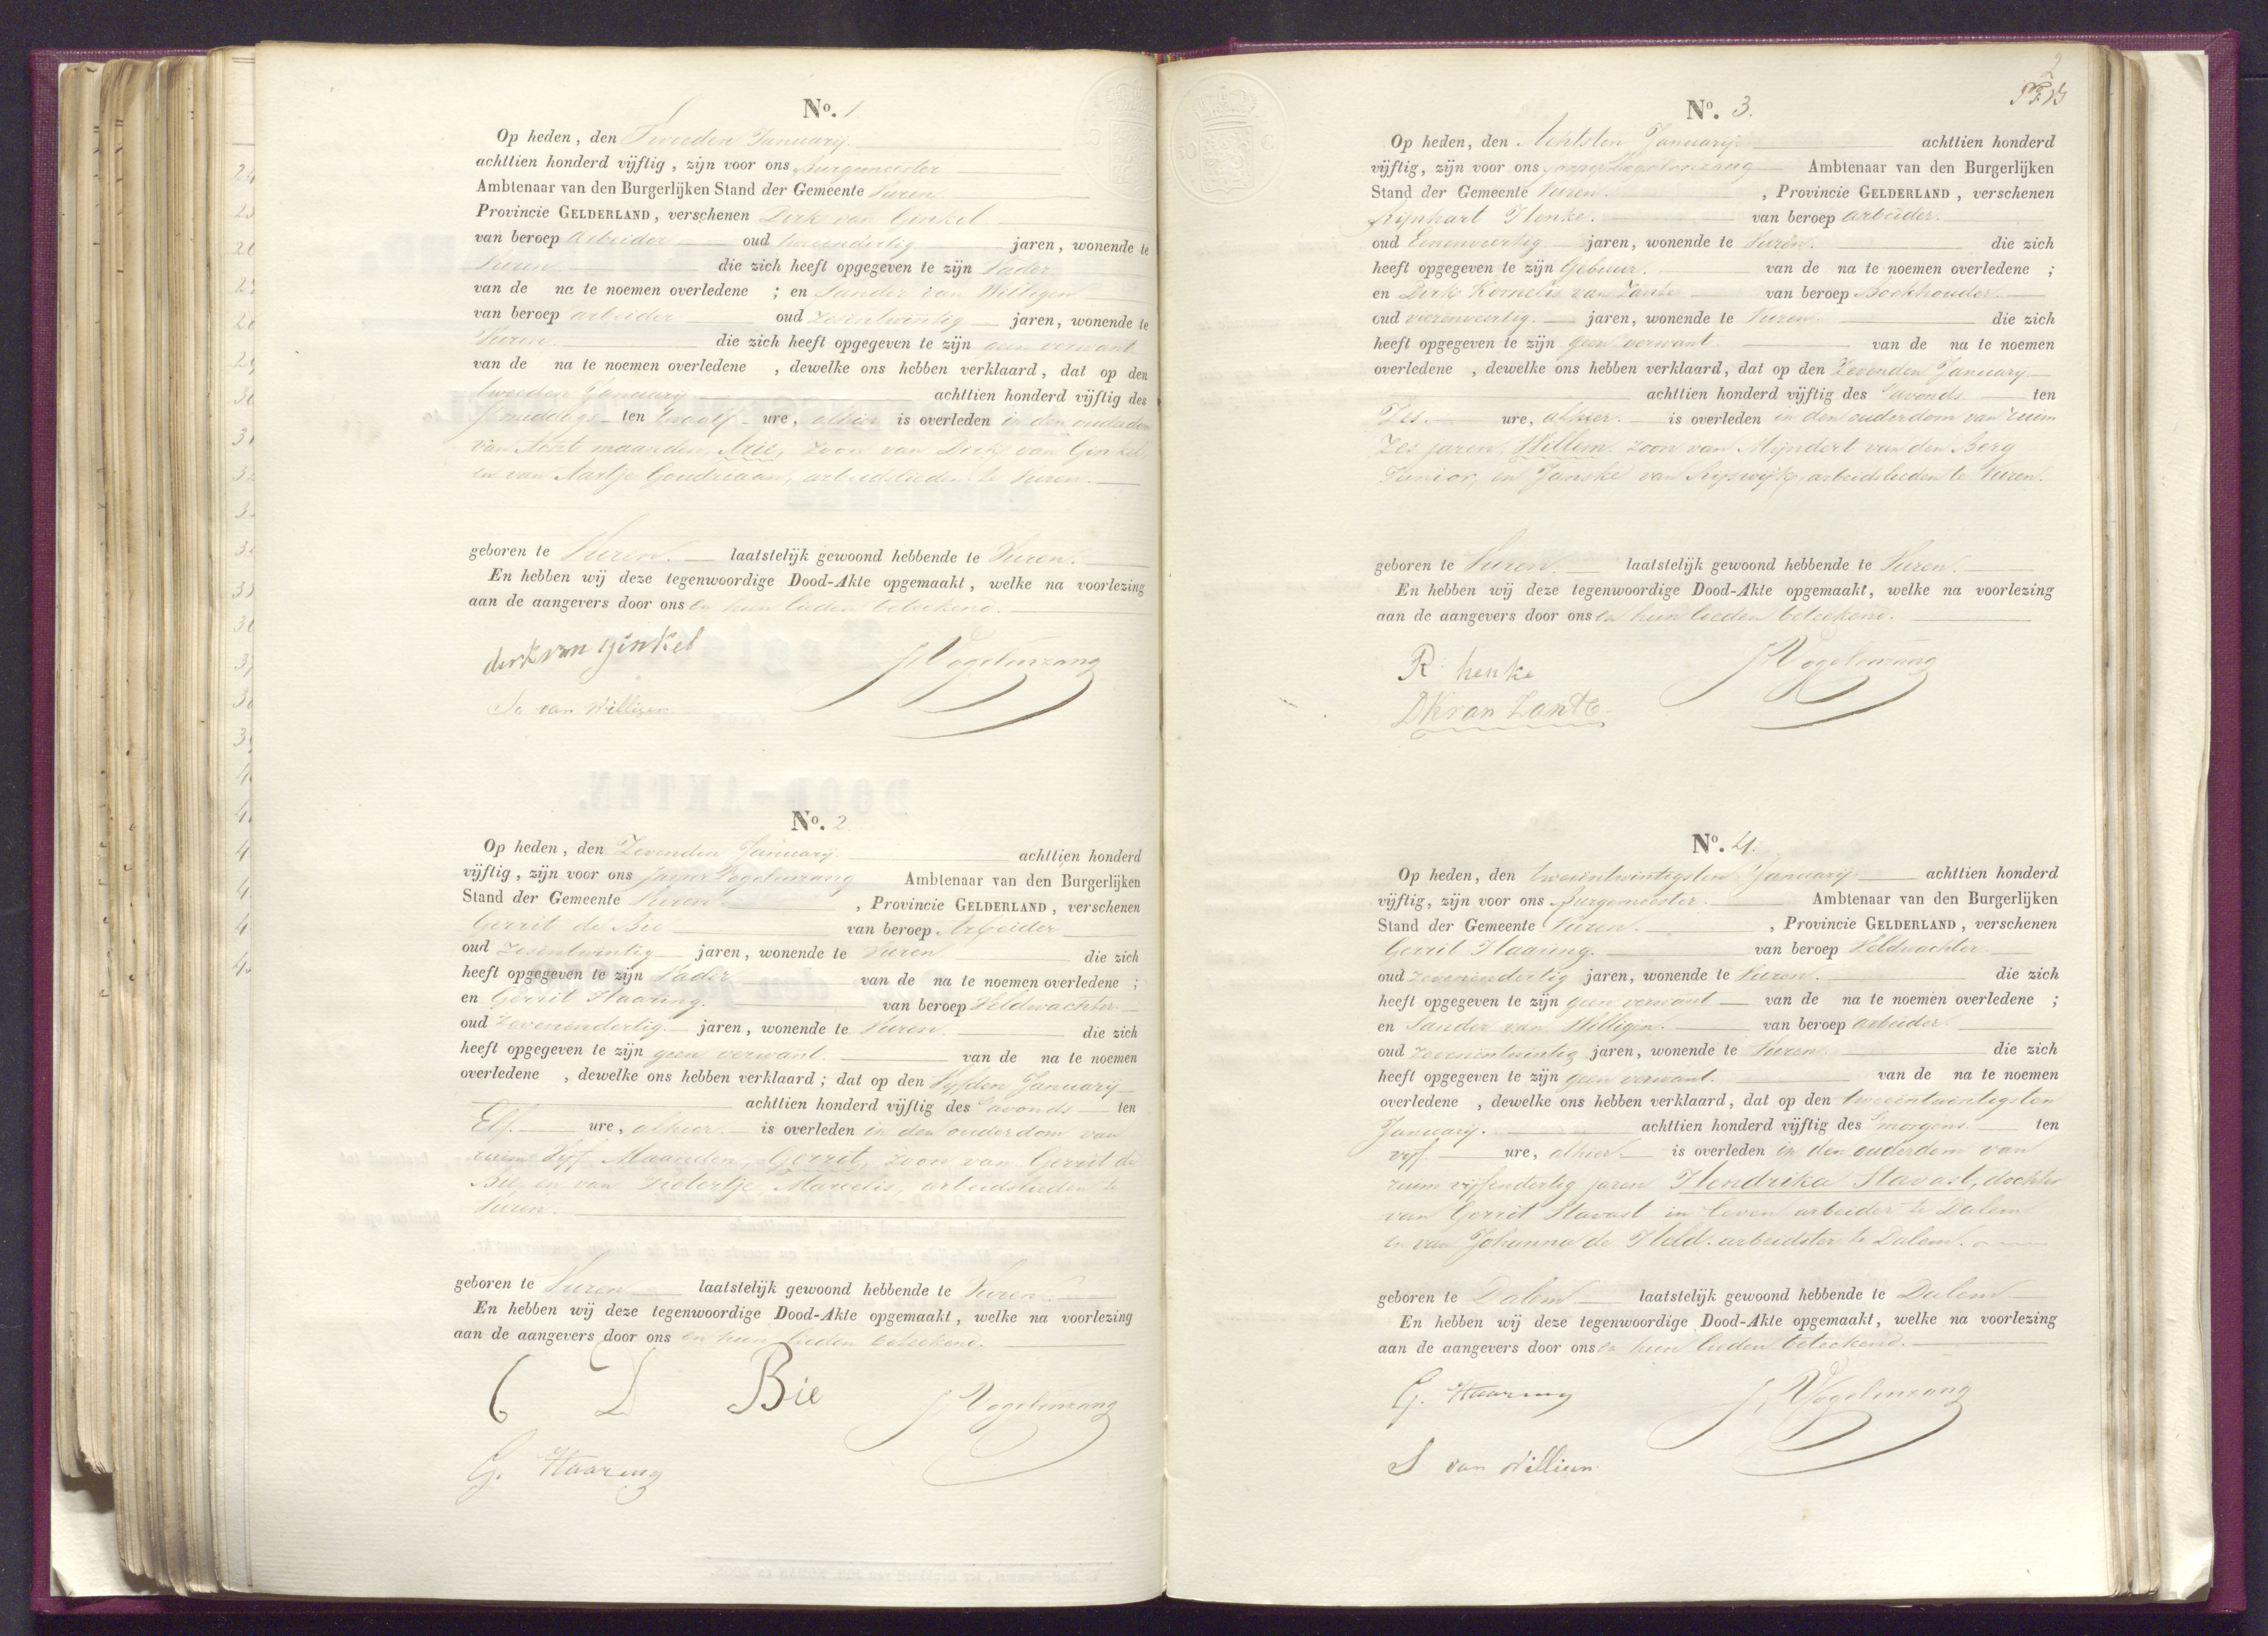 No. 1
Op heden, den Tweeden Januarij
achttien honderd vijftig, zijn voor ons Burgemeester
Ambtenaar van den Burgerlijken Stand der Gemeente Vuren
Provincie GELDERLAND, verschenen Dirk van Ginkel
van beroep Arbeider oud tweeendertig jaren, wonende te
Vuren die zich heeft opgegeven te zijn Vader
van de na te noemen overledene ; en Sander van Willigen
van beroep arbeider oud zesentwintig jaren, wonende te
Vuren die zich heeft opgegeven te zijn geen verwant
van de na te noemen overledene , dewelke ons hebben verklaard, dat op den
tweeden Januarij achttien honderd vijftig des
smiddags ten twaalf ure, alhier is overleden in den ouderdom
van Acht maanden, Arie, zoon van Dirk van Ginkel
en van Aartje Goudriaan, arbeidslieden te Vuren.
geboren te Vuren. laatstelijk gewoond hebbende te Vuren.
En hebben wij deze tegenwoordige Dood-Akte opgemaakt, welke na voorlezing
aan de aangevers door ons en hun lieden beteekend.
dirk van ginkel
J Vogelenzang
Sa van Willigen
No. 2
Op heden, den Zevenden Januarij achttien honderd
vijftig, zijn voor ons Jasper Vogelenzang Ambtenaar van den Burgerlijken
Stand der Gemeente Vuren , Provincie GELDERLAND, verschenen
Gerrit de Bie van beroep Arbeider
oud Zesentwintig jaren, wonende te Vuren die zich
heeft opgegeven te zijn Vader van de na te noemen overledene ;
en Gerrit Haaring. van beroep Veldwachter
oud Zevenendertig jaren, wonende te Vuren die zich
heeft opgegeven te zijn geen verwant van de na te noemen
overledene , dewelke ons hebben verklaard; dat op den Vyfden Januarij
achttien honderd vijftig des savonds ten
Elf. ure, alhier. is overleden in den ouderdom van
ruim Vijf Maanden, Gerrit, zoon van Gerrit de
Bie en van Pietertje Marcelis, arbeidslieden te
Vuren.
geboren te Vuren laatstelijk gewoond hebbende te Vuren
En hebben wij deze tegenwoordige Dood-Akte opgemaakt, welke na voorlezing
aan de aangevers door ons en hun lieden beteekend.
G D Bie
J Vogelenzang
G. Haaring
2
No. 3.
Op heden, den Achtsten Januarij achttien honderd
vijftig, zijn voor ons Jasper Vogelenzang Ambtenaar van den Burgerlijken
Stand der Gemeente Vuren. , Provincie GELDERLAND, verschenen
Rijnhart Henke. van beroep arbeider.
oud Eenenveertig jaren, wonende te Vuren. die zich
heeft opgegeven te zijn Gebuur. van de na te noemen overledene ;
en Dirk Kornelis van Zante van beroep Boekhouder
oud vierenveertig. jaren, wonende te Vuren die zich
heeft opgegeven te zijn geen verwant. van de na te noemen
overledene , dewelke ons hebben verklaard, dat op den Zevenden Januarij
achttien honderd vijftig des savonds ten
Zes. ure, alhier. is overleden in den ouderdom van ruim
Zes jaren, Willem zoon van Mijndert van den Berg
Junior, en Janske van Ryswijk, arbeidslieden te Vuren.
geboren te Vuren. laatstelijk gewoond hebbende te Vuren.
En hebben wij deze tegenwoordige Dood-Akte opgemaakt, welke na voorlezing
aan de aangevers door ons en hun lieden beteekend.
R henke
J Vogelenzang
DK van Zante
No. 4.
Op heden, den tweeëntwintigsten Januarij achttien honderd
vijftig, zijn voor ons Burgemeester. Ambtenaar van den Burgerlijken
Stand der Gemeente Vuren. , Provincie GELDERLAND, verschenen
Gerrit Haaring. van beroep Veldwachter
oud zevenendertig jaren, wonende te Vuren. die zich
heeft opgegeven te zijn geen verwant van de na te noemen overledene ;
en Sander van Willigen. van beroep arbeider
oud zevenentwintig jaren, wonende te Vuren. die zich
heeft opgegeven te zijn geen verwant. van de na te noemen
overledene , dewelke ons hebben verklaard, dat op den tweeëntwintigsten
Januarij. achttien honderd vijftig des smorgens ten
vijf. ure, alhier. is overleden in den ouderdom van
ruim vijfendertig jaren Hendrika Stavast, dochter
van Gerrit Stavast in leven arbeider te Dalem
en van Johanna de Held. arbeidster te Dalem.
geboren te Dalem laatstelijk gewoond hebbende te Dalem
En hebben wij deze tegenwoordige Dood-Akte opgemaakt, welke na voorlezing
aan de aangevers door ons en hun lieden beteekend.
G. Haaring
J. Vogelenzang
S van Willigen